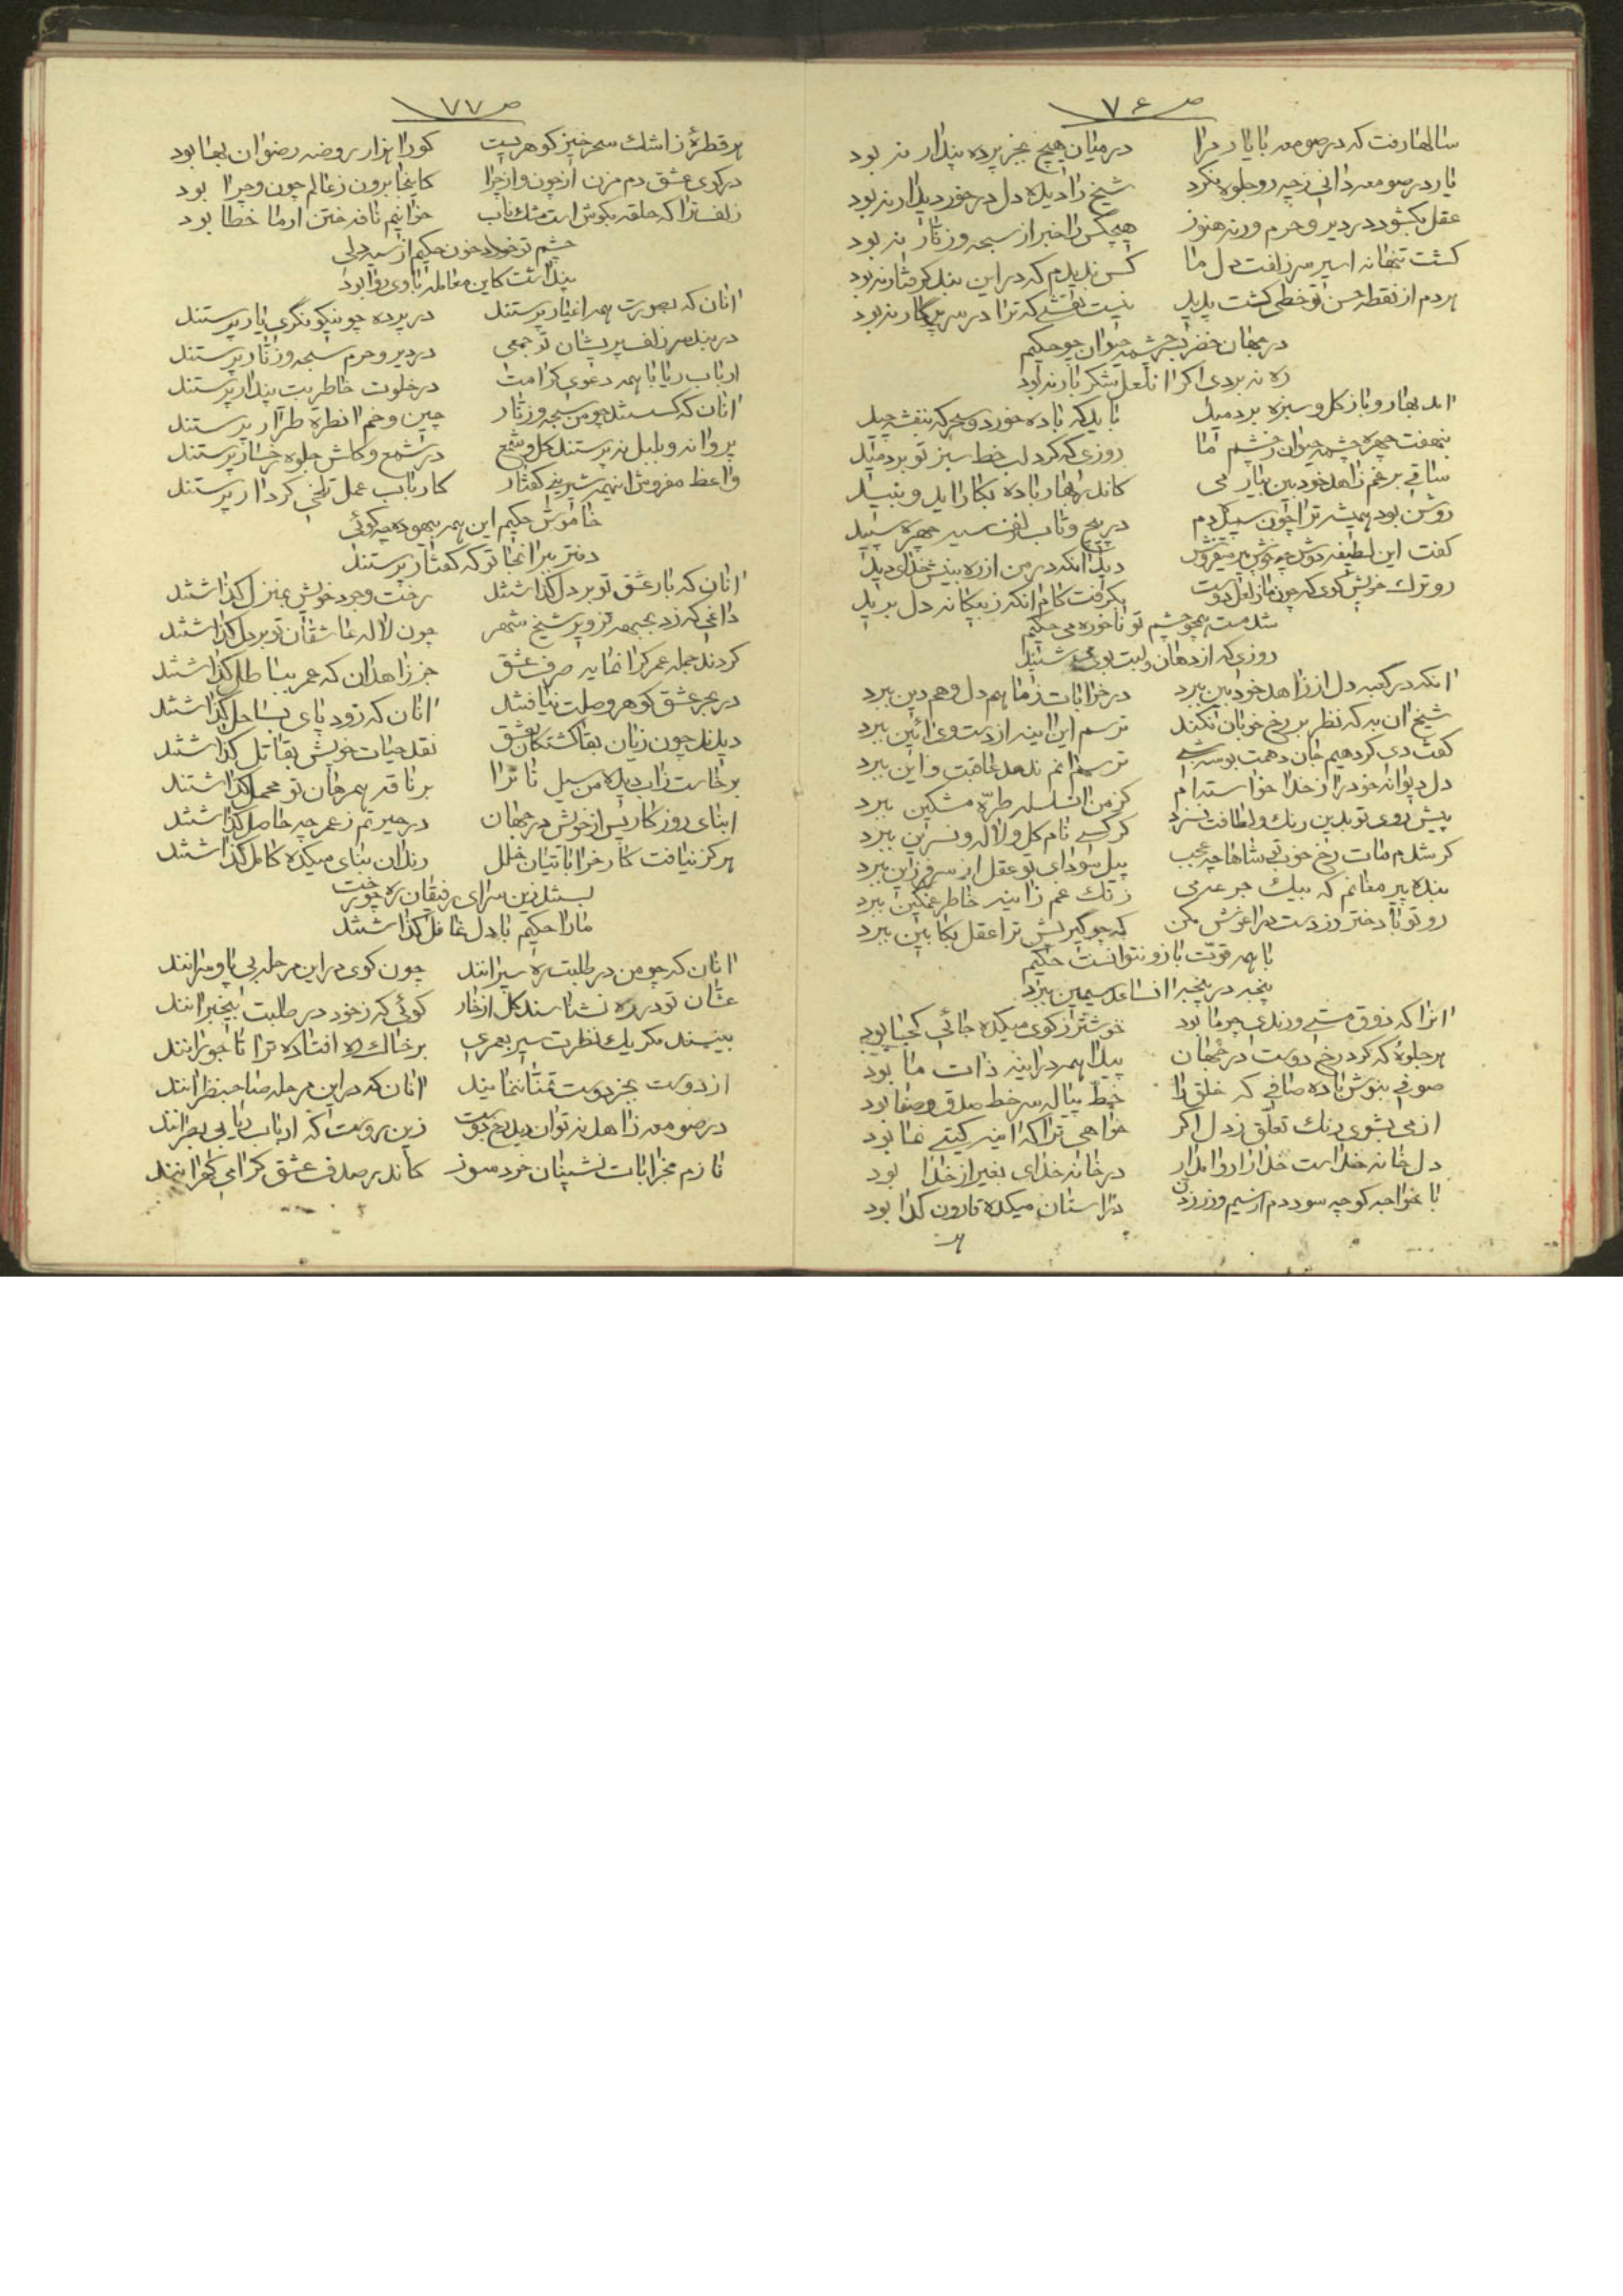 ص ٧۶
سالها رفت که در صومعه با یار مرا در میان هیچ بجز پرده پندار نبود
یار در صومعه دانی ز چه رو جلوه نکرد شیخ را دیده دل در خور دیدار نبود
عقل بگشود در دیر و حرم ورنه هنوز هیچکس را خبر از سبحه و زنار نبود
گشت تنها نه اسیر سر زلفت دل ما کس ندیدم که در این بند گرفتار نبود
هر دم از نقطه حسن تو خطی گشت پدید نیست نقشی که ترا در سر پرگار نبود
در جهان خضر بسرچشمه حیوان چو حکیم
ره نبردی اگر از لعل شکر بار نبود
آمد بهار و باز گل و سبزه بردمید باید که باده خورد و چمن
بنهفت چهره چشمه حیوان ز چشم ما روزی که گرد لب خط سبز تو بردمید
ساقی برغم زاهد خودبین بیار می کاندر بهار باده بکار آید و نبید
روشن بود همیشه ترا چون سپیده دم در پیچ و تاب زلف سیه چهره سپید
گفت این لطیفه دوش چه خوش پیر میفروش دید آنکه در من از ره بینش خدای دید
رو ترک خویش گوی که چون ما ز لعل دوست بگرفت کام آنکه ز بیگانه دل برید
شد مست همچو چشم تو ناخورده می حکیم
روزی که از دهان و لبت بوی می شنید
آنکه در کعبه دل از زاهد خودبین ببرد در خرابات ز ما هم دل و هم دین ببرد
شیخ آن به که نظر بر رخ خوبان نکند ترسم این آینه از دست وی آئین ببرد
گفت دی کردهیم جان دهمت بوسه ترسم آنم ندهد عاقبت و این ببرد
دل دیوانه خود را ز خدا خواسته ام کز من آن سلسله طره مشکین ببرد
پیش روی تو بدین رنگ و لطافت نسزد گر کسی نام گل و لاله و نسرین ببرد
گر شدم مات رخ خوب تو شاها چه عجب پیل سودای تو عقل از سر فرزین ببرد
بنده پیر مغانم که بیک جرعه می زنگ غم ز آینه خاطر غمگین ببرد
رو تو با دختر رز دست در آغوش مکن که چو گیریش ترا عقل بکابین ببرد
با همه قوت بازو نتوانست حکیم
پنجه در پنجه از آن ساعد سیمین ببرد
آنرا که ذوق مستی و رندی چو ما بود خوشتر ز کوی میکده جائی کجا بود
هر جلوه که کرد رخ دوست در جهان پیدا همه در آینه ذات ما بود
صوفی بنوش باده صافی که خلق را خط پیاله سرخط صدق و صفا بود
از می بشوی رنگ تعلق ز دل اگر خواهی ترا که آینه گیتی نما بود
دل خانه خداست خدا را روا مدار در خانه خدای بغیر از خدا بود
با خواجه گو چه سود دم از سیم و زر زدن در آستان میکده قارون گدا بود
هر
ص ٧٧
هر قطره ز اشک سحرخیز گوهریست کو را هزار روضه رضوان بها بود
در کوی عشق دم مزن از چون و از چرا کاینجا برون ز عالم چون و چرا بود
زلف ترا که حلقه بگوش است مشک ناب خوانیم نافه ختن از ما خطا بود
چشم تو خورد خون حکیم از سیه دلی
پنداشت کاین معامله با وی روا بود
آنان که بصورت همه اغیار پرستند در پرده چو نیکو نگری یار پرستند
در بند سر زلف پریشان تو جمعی در دیر و حرم سبحه و زنار پرستند
ارباب ریا با همه دعوی کرامت در خلوت خاطر بت پندار پرستند
آنان که گسستند چو من سبحه و زنار چین و خم آن طره طرار پرستند
پروانه و بلبل نه پرستند گل و شمع در شمع و گلش جلوه رخسار پرستند
واعظ مفروش اینهمه شیرینی گفتار کارباب عمل تلخی کردار پرستند
خاموش حکیم این همه بیهوده چه گوئی
دفتر ببر آنجا تو که گفتار پرستند
آنان که بار عشق تو بر دل گذاشتند رخت وجود خویش بمنزل گذاشتند
داغی که زد بجبهه تزویر شیخ شهر چون لاله عاشقان تو بر دل گذاشتند
کردند جمله عمر گرانمایه صرف عشق جز زاهدان که عمر بباطل گذاشتند
در بحر عشق گوهر وصلت نیافتند آنان که زود پای بساحل گذاشتند
دیدند چون زیان بقا کشتگان عشق نقد حیات خویش بقاتل گذاشتند
برخاست ز آب دیده من سیل تا ترا بر ناقه همرهان تو محمل گذاشتند
ابنای روزگار پس از خویش در جهان در حیرتم ز عمر چه حاصل گذاشتند
هرگز نیافت کار خراباتیان خلل رندان بنای میکده کامل گذاشتند
بستند زین سرای رفیقان ره چو رخت
ما را حکیم با دل غافل گذاشتند
آنان که چو من در طلبت ره سپرانند چون گوی در این مرحله بی پا و سرانند
عشاق تو در ره نشناسند گل از خار گوئی که ز خود در طلبت بیخبرانند
بینند مگر یک نظرت سیر بعمری بر خاک ره افتاده ترا تاجورانند
از دوست بجز دوست تمنا ننمایند آنان که در این مرحله صاحبنظرانند
در صومعه زاهد نتوان دید رخ دوست زین روست که ارباب ریا بی بصرانند
نازم بخرابات نشینان خردسوز کاندر صدف عشق گرامی گهرانند